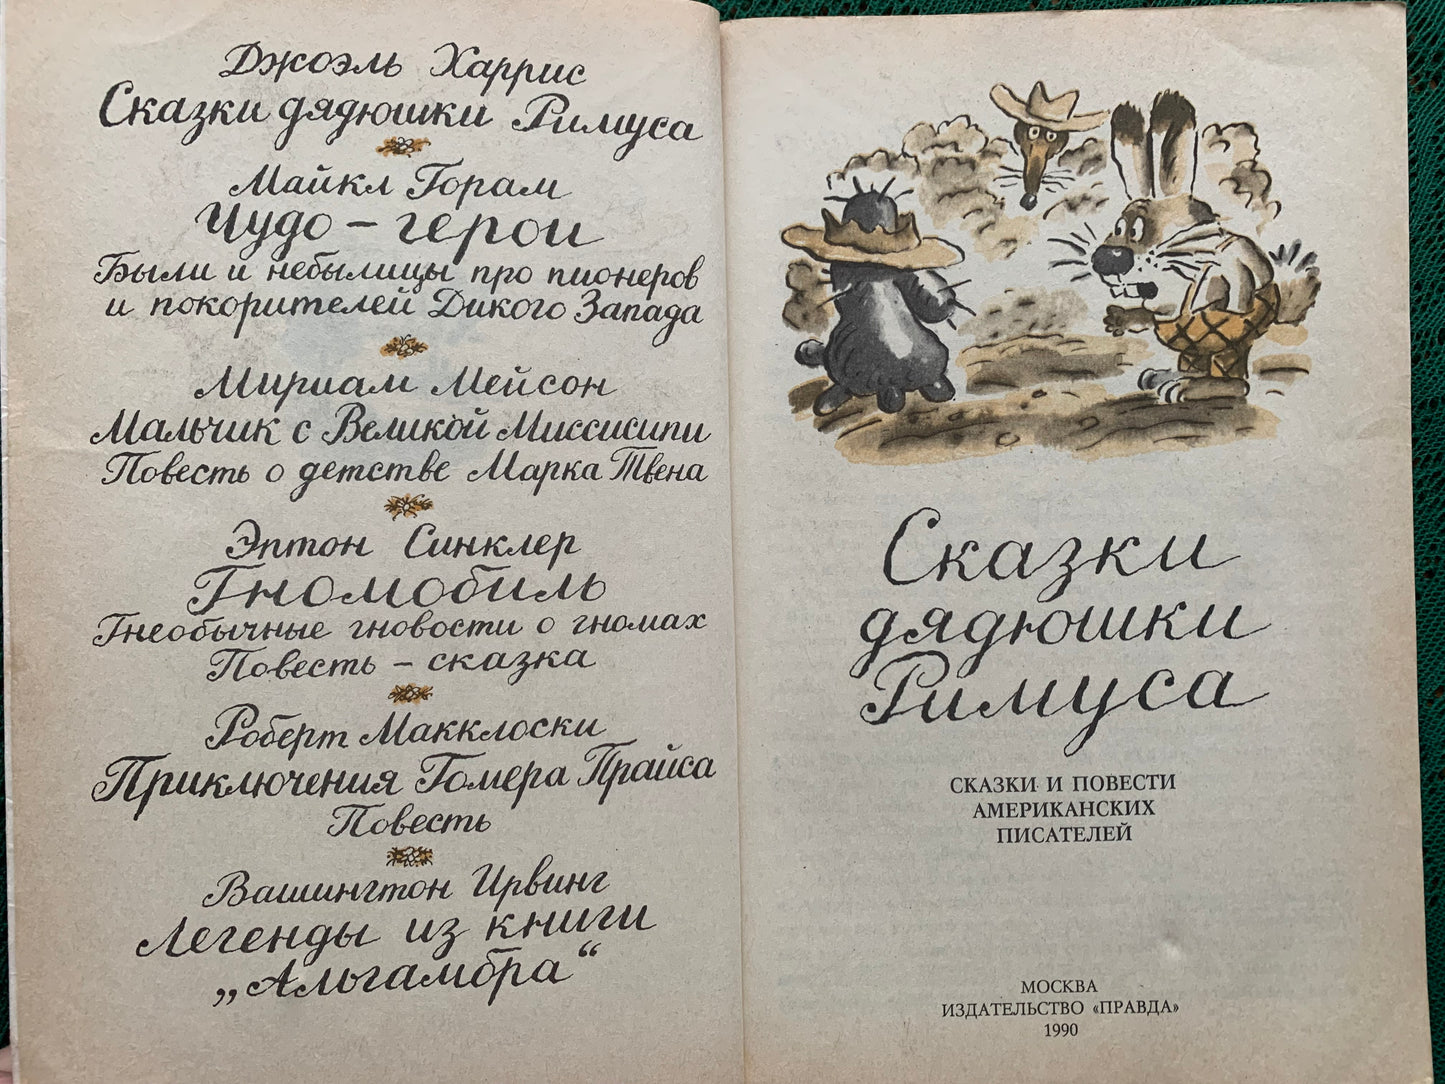 Джоэль Харрис
Сказки дядюшки Римуса
Майкл Горам
Чудо-герои
Были и небылицы про пионеров
и покорителей Дикого Запада
Мириам Мейсон
Мальчик с Великой Миссисипи
Повесть о детстве Марка Твена
Эптон Синклер
Гномобиль
Гнеобычные гновости о гномах
Повесть-сказка
Роберт Макклоски
Приключения Гомера Прайса
Повесть
Вашингтон Ирвинг
Легенды из книги
„Альгамбра“
Сказки
дядюшки
Римуса
СКАЗКИ И ПОВЕСТИ
АМЕРИКАНСКИХ
ПИСАТЕЛЕЙ
МОСКВА
ИЗДАТЕЛЬСТВО «ПРАВДА»
1990